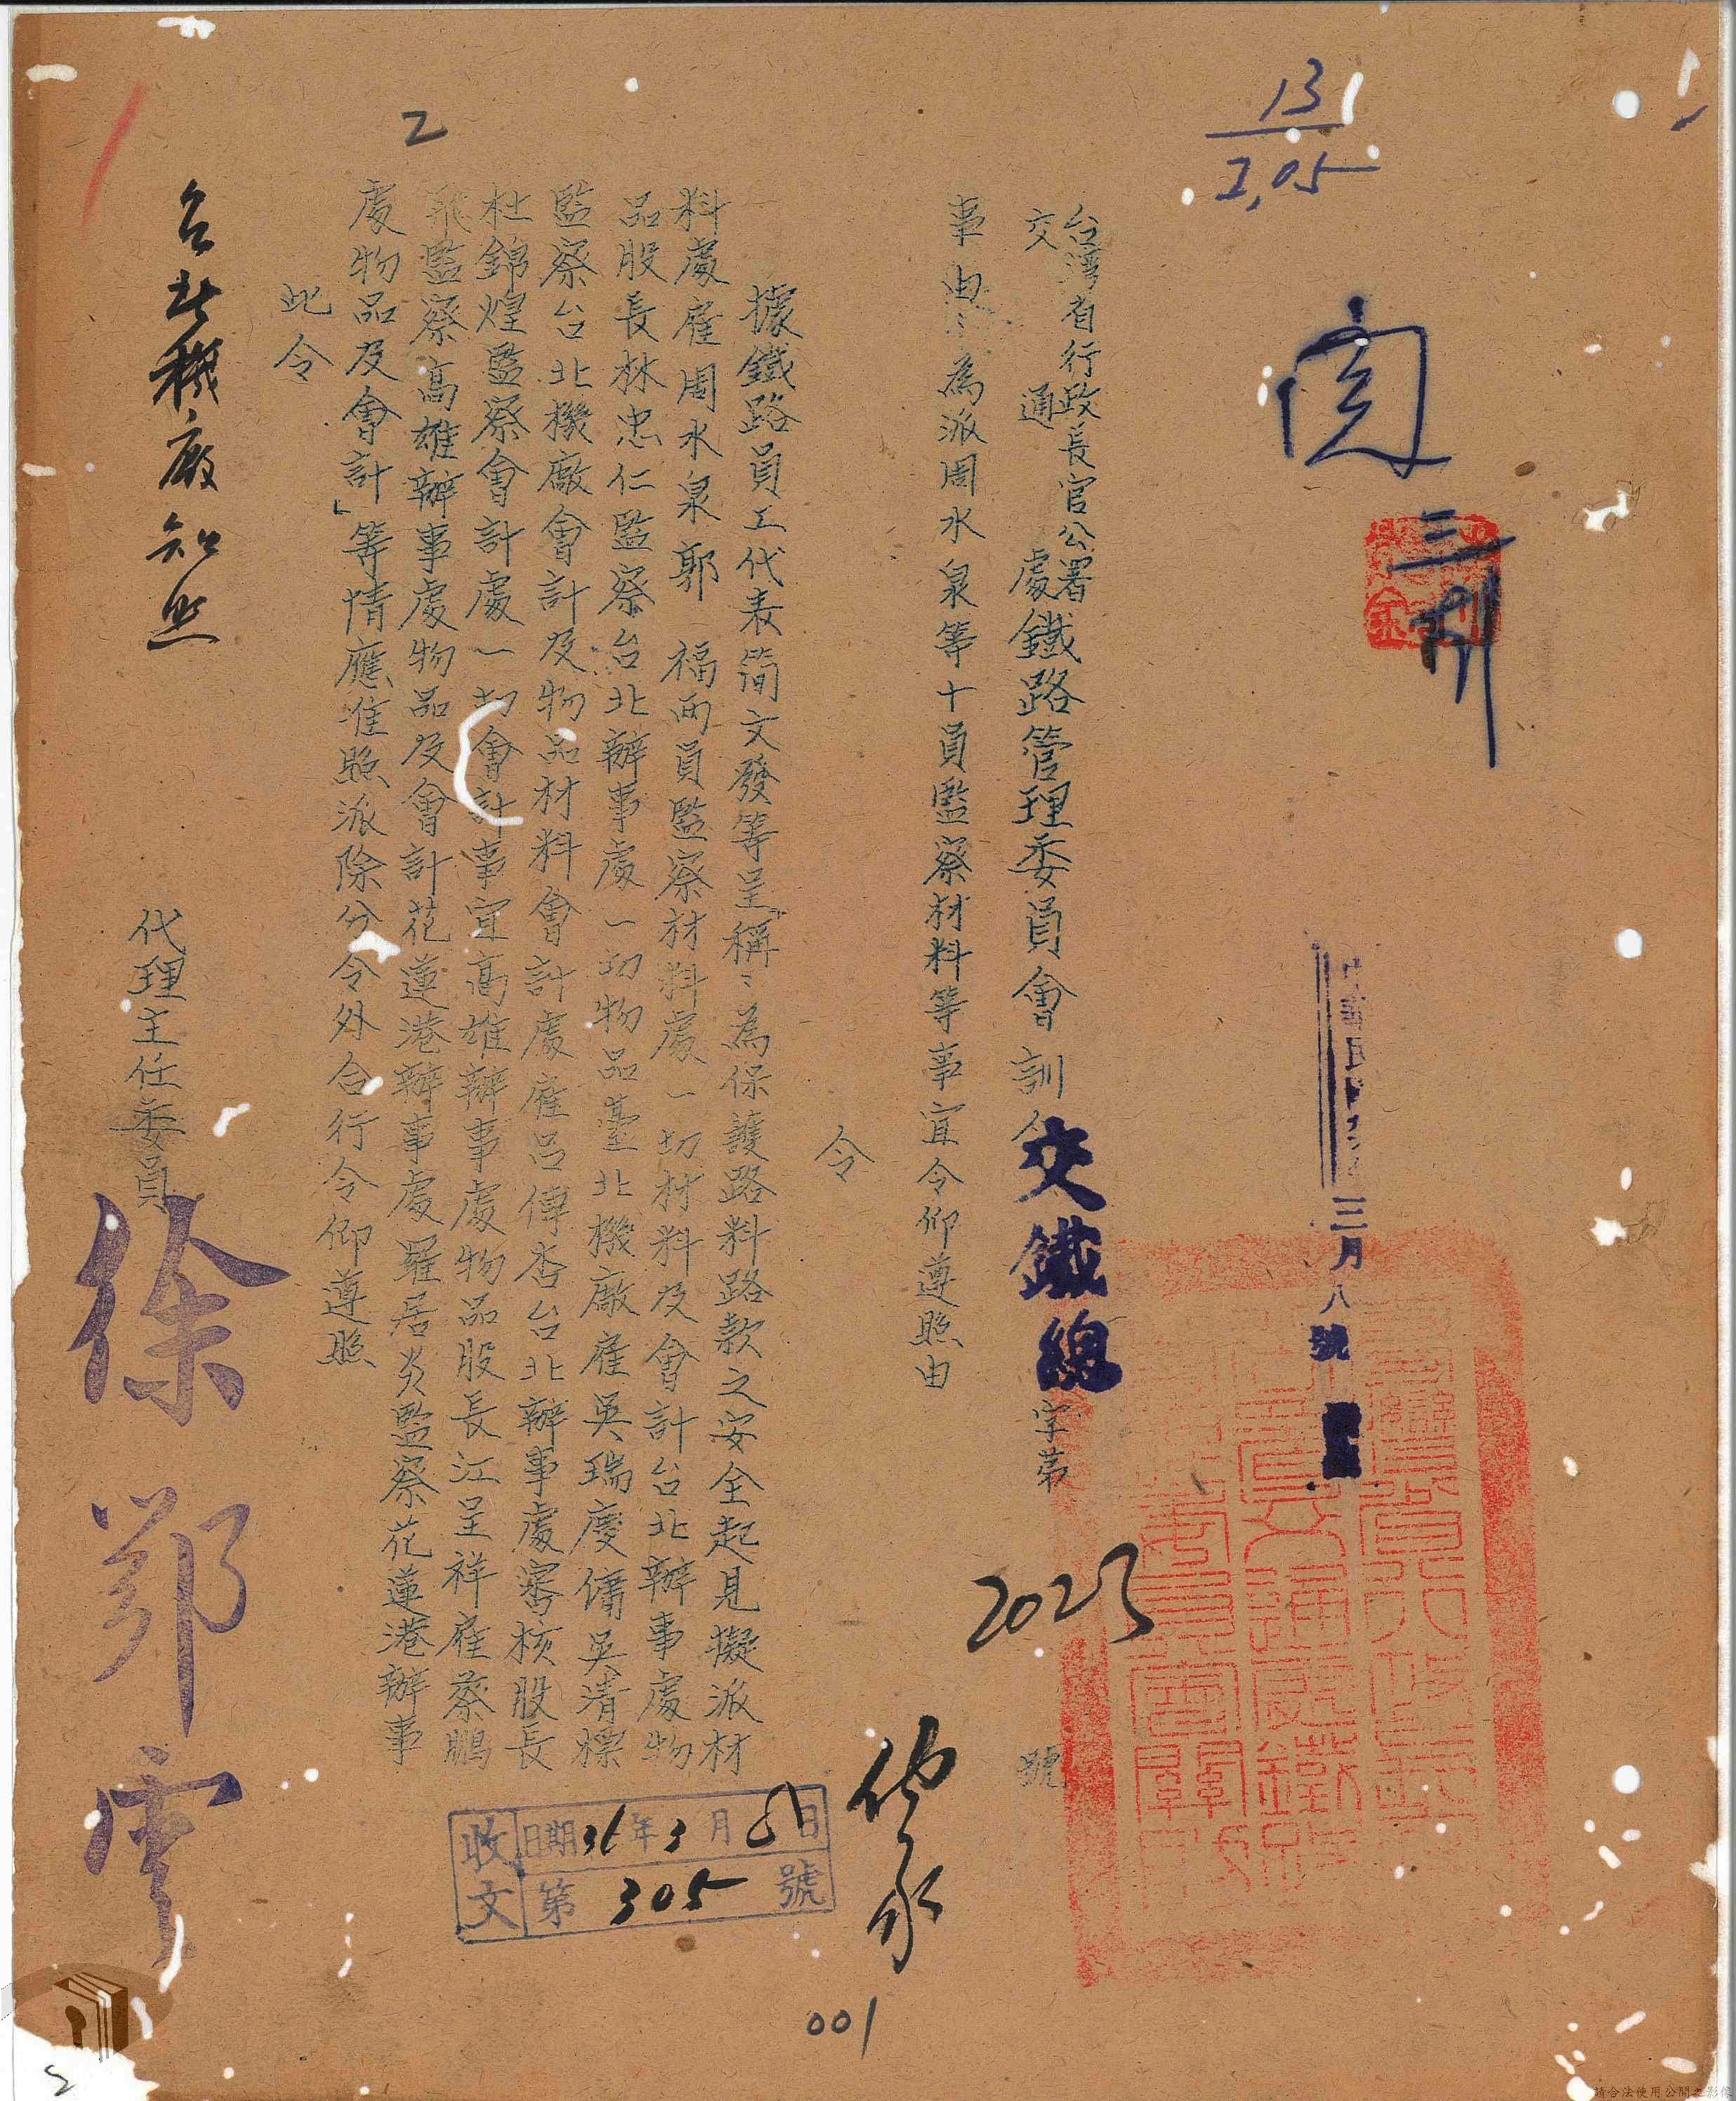 13
2,05
閱
中華民國
三月八
號
台灣省行政長官公署
交通處鐵路管理委員會訓令
交鐵總字第2023號
事由：為派周水泉等十員監察材料等事宜令仰遵照由
令
據鐵路員工代表簡文發等呈稱：「為保護路料路款之安全起見擬派材
料處雇周水泉郭　福両員監察材料處一切材料及會計台北辦事處物
品股長林忠仁監察台北辦事處一切物品臺北機廠雇吳瑞慶傭吳清標
監察台北機廠會計及物品材料會計處雇呂傳杏台北辦事處審核股長
杜錦煌監察會計處一切會計事宜高雄辦事處物品股長江呈祥雇蔡鵬
飛監察高雄辦事處物品及會計花蓮港辦事處羅居炎監察花蓮港辦事
處物品及會計」等情應准照派除分令外合行令仰遵照
此令
台北機廠知照
代理主任委員
徐鄂雲
收文
日期36年3月8日
第305號
001
2
2
請合法使用公開之影像